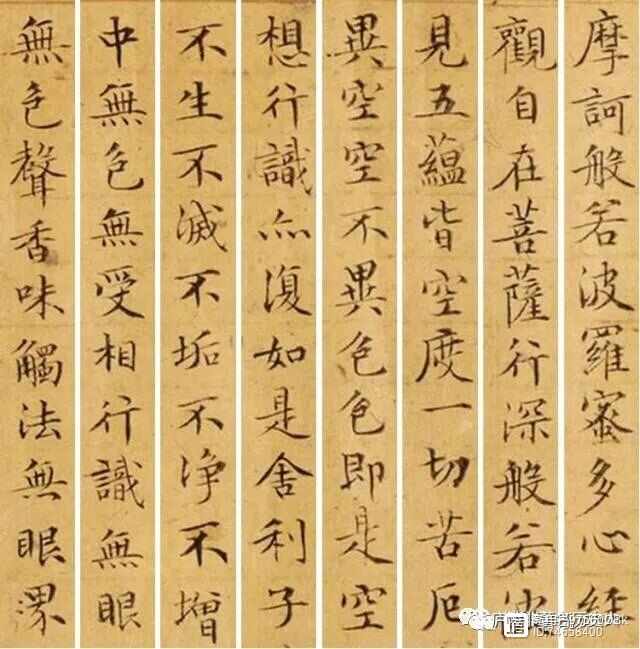 摩訶般若波羅蜜多心經
觀自在菩薩行深般若
見五蘊皆空度一切苦厄
異空空不異色色即是空
想行識亦復如是舍利子
不生不滅不垢不净不增
中無色無受相行識無眼
無色聲香味觸法無眼
ID:74658400